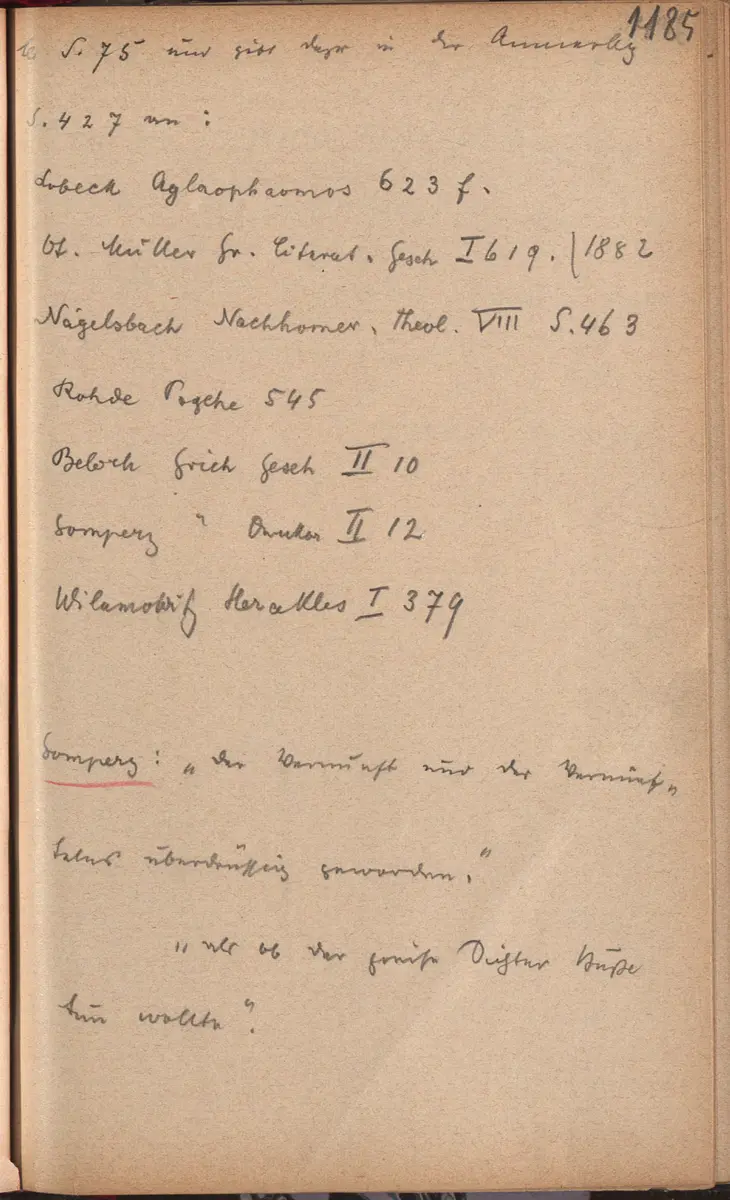 1185
S. 75 und gibt dazu in der Anmerkg
S. 427 an :
Lobeck Aglaophaomos 623 f.
Of. Müller Gr. Literat. Gesch I 619. | 1882
Nägelsbach Nachhomer. Theol. VIII S. 463
Rohde Psyche 545
Beloch Griech Gesch II 10
Gomperz " Denker II 12
Wilamowitz Herakles I 379
Gomperz : „der Vernunft und des Vernünf„
telns überdrüssig geworden.“
„als ob der greise Dichter Buße
tun wollte“.